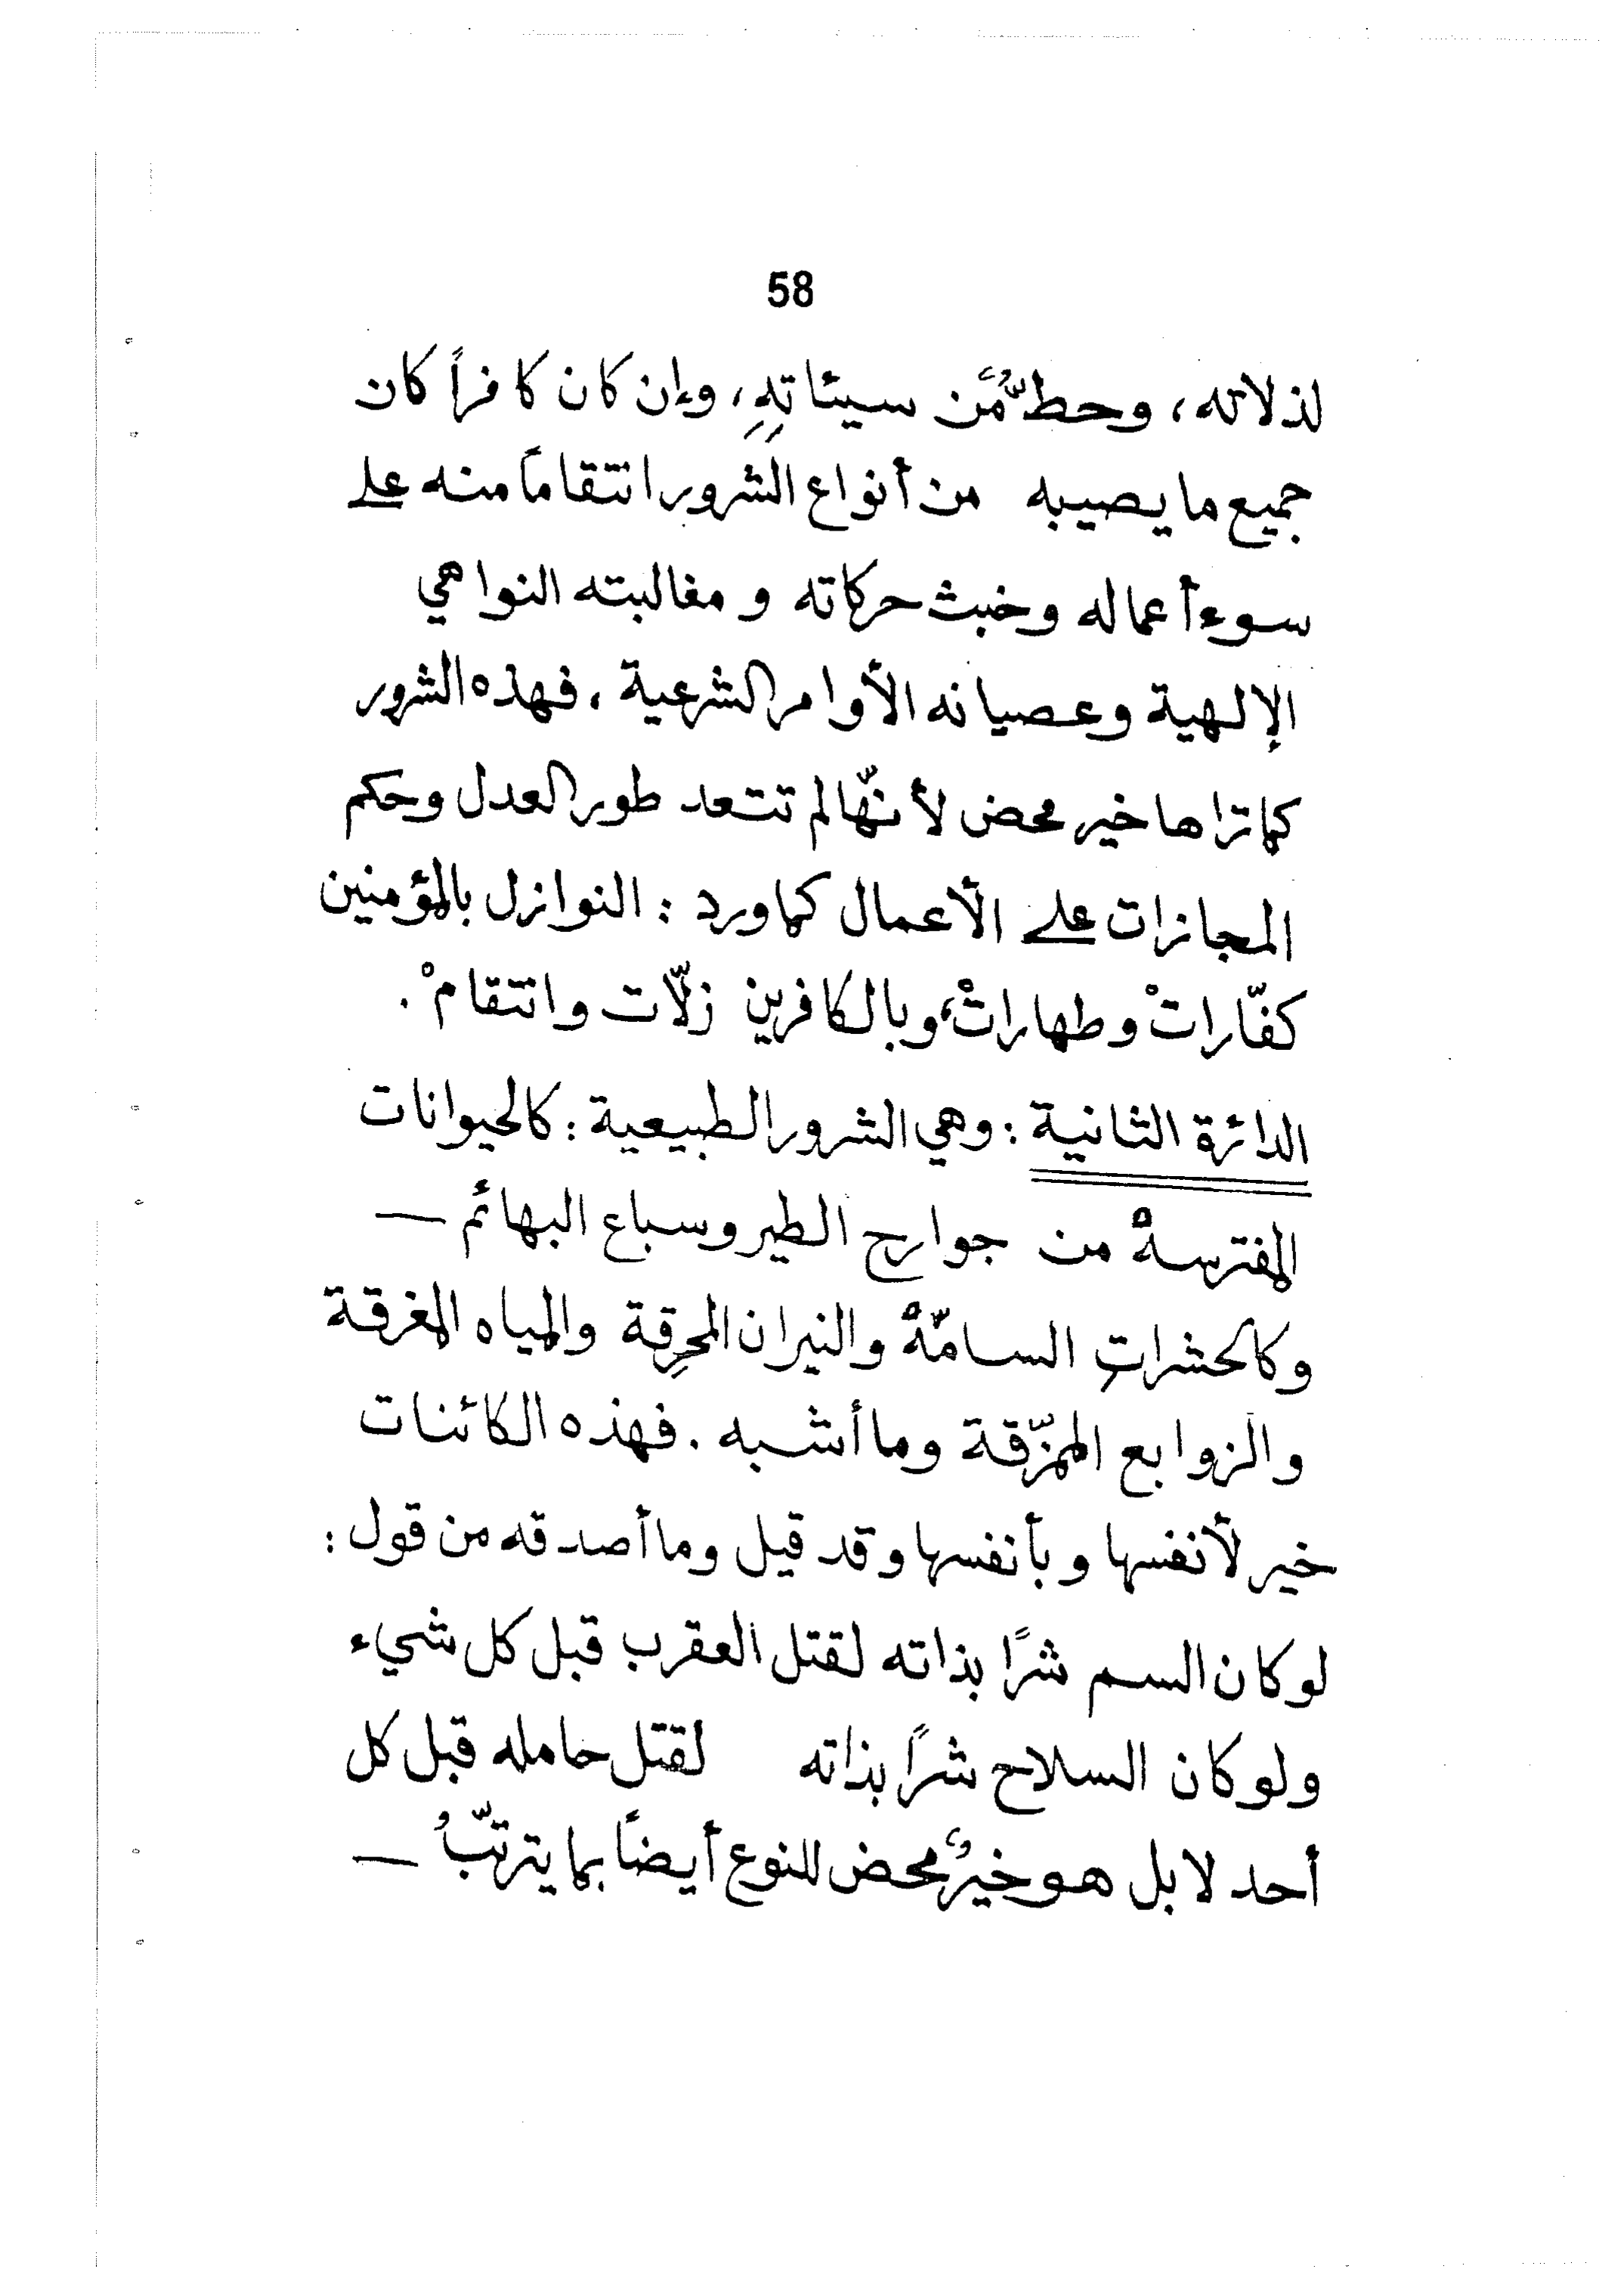 58
لذلاته، وحطٌّ من سيئاتهِ، وإن كان كافراً كان
جميع ما يصيبه من أنواع الشرور انتقاماً منه على
سوء أعماله وخبث حركاته و مغالبته النواهي
الإلهية وعصيانه الأوامر الشرعية، فهذه الشرور
كما تراها خير محض لأنّها لم تتعد طور العدل وحكم
المجازات على الأعمال كما ورد : النوازل بالمؤمنين
كفّاراتْ وطهاراتْ، وبالكافرين زلّات وانتقامْ .
الدائرة الثانية : وهي الشرور الطبيعية : كالحيوانات
المفترسهْ من جوارح الطير وسباع البهائم —
وكالحشراتِ السامّهْ والنيران المحرِقة والمياه المغرقة
والزوابع الممزّقة وما أشبه . فهذه الكائنات
خير لأنفسها وبأنفسها وقد قيل وما أصدقه من قول :
لو كان السم شرًا بذاته لقتل العقرب قبل كل شيء
ولو كان السلاح شراً بذاته لقتل حامله قبل كل
أحد لا بل هو خيرٌ محض للنوع أيضاً بما يترتّبُ —